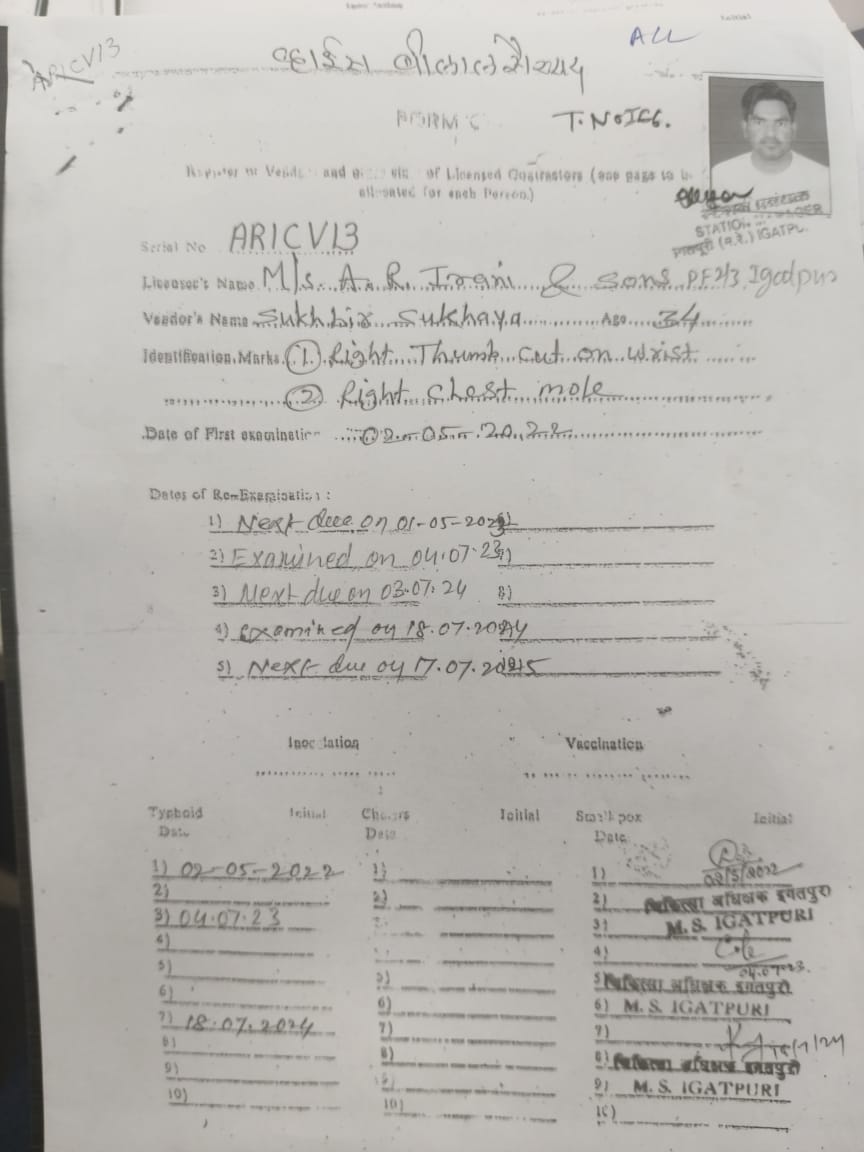 ALL
ARICV13
FORM C
T. No IGG.
Register of Vendors and of Licensed Contractors (one page to be
allocated for each Person.)
स्टेशन प्रबंधक
STATION MANAGER
इगतपुरी (म.रे.) IGATPU
Serial No ARICV13
Licensee's Name M/s. A. R. Irani & sons PF 2/3 Igatpur
Vendor's Name Sukhbir Sukhaya Age 34
Identification Marks (1) Right Thumb cut on wrist
(2) Right chest mole
Date of First examination 02-05-2022
Dates of Re-Examination :
1) Next due on 01-05-2023
2) Examined on 04.07.23
3) Next due on 03.07.24 8)
4) Examined on 18.07.2024
5) Next due on 17.07.2025
Inoculation Vaccination
Typhoid Initial Cholera Initial Small pox Initial
Date Date Date
1) 02-05-2022 1) 1) 02/5/2022
2) 2) 2) चिकित्सा अधिक्षक इगतपुरी
3) 04.07.23 3) M. S. IGATPURI
4) 4)
04.07.23.
5) 5) 5) चिकित्सा अधिक्षक इगतपुरी
6) 6) 6) M. S. IGATPURI
7) 18.07.2024 7) 7) 18/7/24
8) 8) 8) चिकित्सा अधिक्षक इगतपुरी
9) 9) M. S. IGATPURI
10) 10) 10)